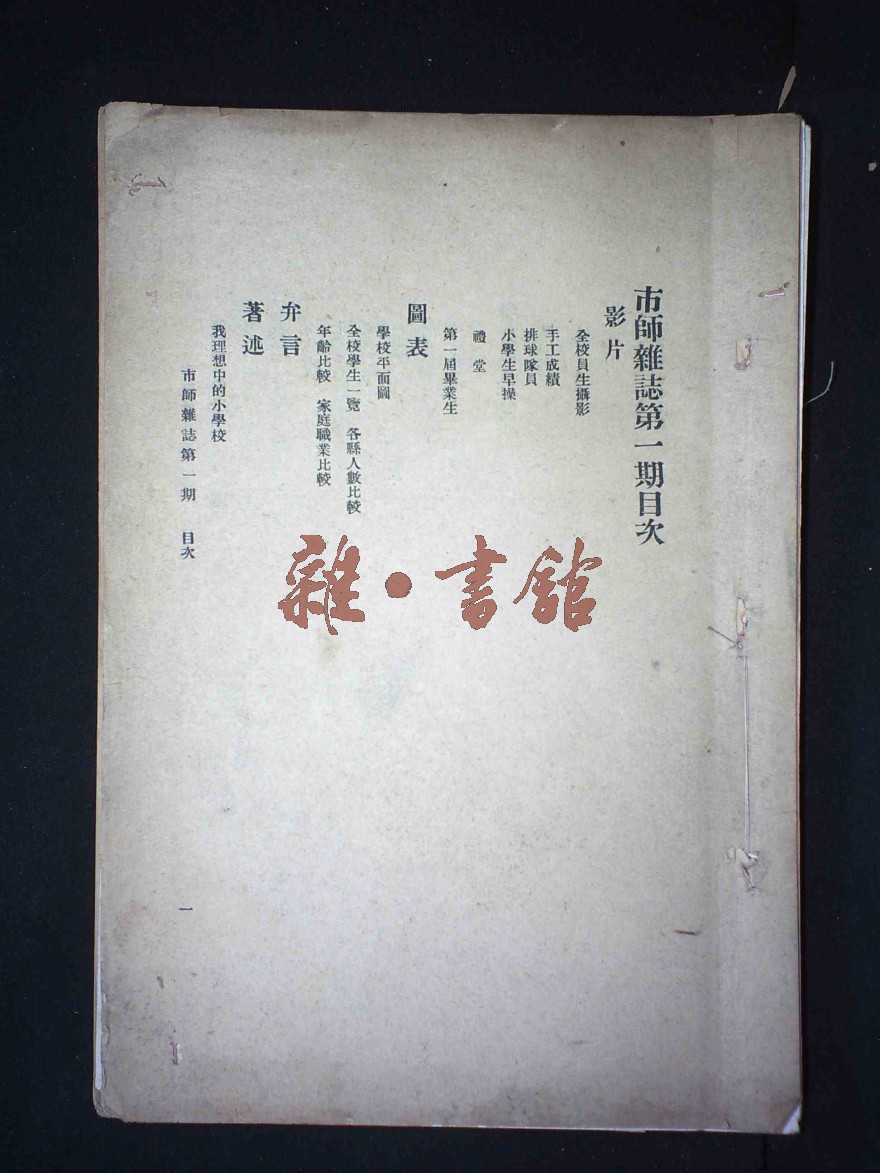 市師雜誌第一期目次
影片
全校員生攝影
手工成績
排球隊員
小學生早操
禮堂
第一屆畢業生
圖表
學校平面圖
全校學生一覽 各縣人數比較
年齡比較 家庭職業比較
弁言
著述
我理想中的小學校
市師雜誌第一期 目次
一
雜·書館